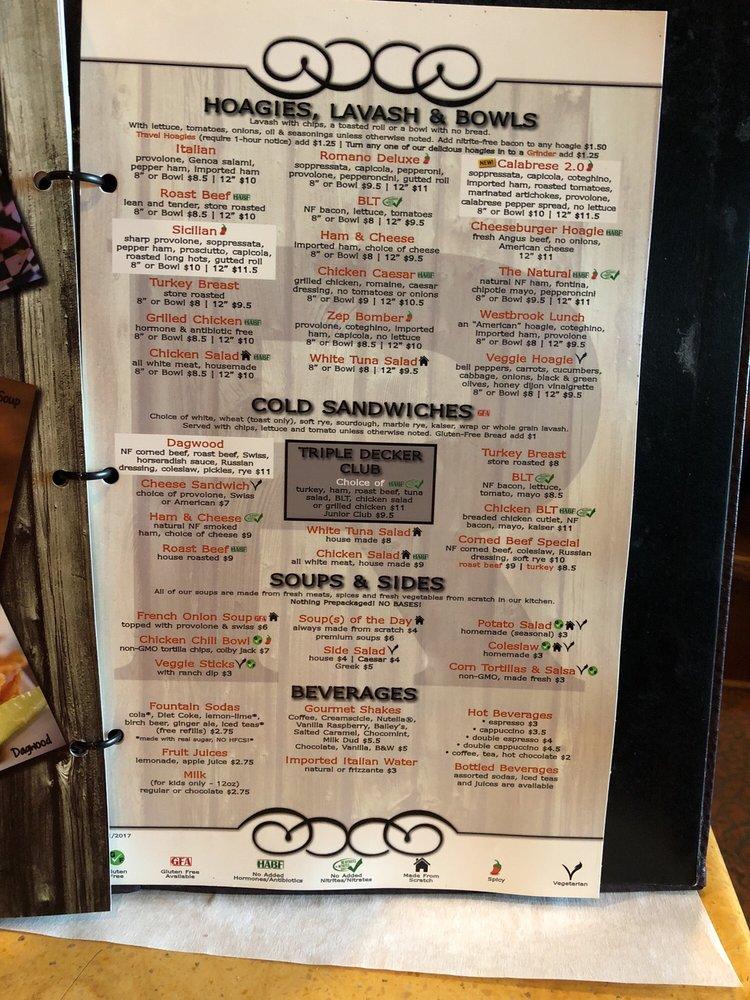 HOAGIES, LAVASH & BOWLS
Lavash with chips, a toasted roll or a bowl with no bread.
With lettuce, tomatoes, onions, oil & seasonings unless otherwise noted. Add nitrite-free bacon to any hoagie $1.50
Travel Hoagies (require 1-hour notice) add $1.25 | Turn any one of our delicious hoagies in to a Grinder add $1.25
Italian
provolone, Genoa salami,
pepper ham, imported ham
8" or Bowl $8.5 | 12" $10
Roast Beef HABF
lean and tender, store roasted
8" or Bowl $8.5 | 12" $10
Sicilian
sharp provolone, soppressata,
pepper ham, prosciutto, capicola,
roasted long hots, gutted roll
8" or Bowl $10 | 12" $11.5
Turkey Breast
store roasted
8" or Bowl $8 | 12" $9.5
Grilled Chicken HABF
hormone & antibiotic free
8" or Bowl $8.5 | 12" $10
Chicken Salad HABF
all white meat, housemade
8" or Bowl $8.5 | 12" $10
Romano Deluxe
soppressata, capicola, pepperoni,
provolone, pepperoncini, gutted roll
8" or Bowl $9.5 | 12" $11
BLT
NF bacon, lettuce, tomatoes
8" or Bowl $8 | 12" $9.5
Ham & Cheese
imported ham, choice of cheese
8" or Bowl $8 | 12" $9.5
Chicken Caesar HABF
grilled chicken, romaine, caesar
dressing, no tomatoes or onions
8" or Bowl $9 | 12" $10.5
Zep Bomber
provolone, coteghino, imported
ham, capicola, no lettuce
8" or Bowl $8.5 | 12" $10
White Tuna Salad
8" or Bowl $8 | 12" $9.5
NEW! Calabrese 2.0
soppressata, capicola, coteghino,
imported ham, roasted tomatoes,
marinated artichokes, provolone,
calabrese pepper spread, no lettuce
8" or Bowl $10 | 12" $11.5
Cheeseburger Hoagie HABF
fresh Angus beef, no onions,
American cheese
12" $11
The Natural HABF
natural NF ham, fontina,
chipotle mayo, pepperoncini
8" or Bowl $9.5 | 12" $11
Westbrook Lunch
an "American" hoagie, coteghino,
imported ham, provolone
8" or Bowl $8 | 12" $9.5
Veggie Hoagie
bell peppers, carrots, cucumbers,
cabbage, onions, black & green
olives, honey dijon vinaigrette
8" or Bowl $8 | 12" $9.5
COLD SANDWICHES GFA
Choice of white, wheat (toast only), soft rye, sourdough, marble rye, kaiser, wrap or whole grain lavash.
Served with chips, lettuce and tomato unless otherwise noted. Gluten-Free Bread add $1
Dagwood
NF corned beef, roast beef, Swiss,
horseradish sauce, Russian
dressing, coleslaw, pickles, rye $11
Cheese Sandwich
choice of provolone, Swiss
or American $7
Ham & Cheese
natural NF smoked
ham, choice of cheese $9
Roast Beef HABF
house roasted $9
TRIPLE DECKER
CLUB
Choice of HABF
turkey, ham, roast beef, tuna
salad, BLT, chicken salad
or grilled chicken $11
Junior Club $9.5
White Tuna Salad
house made $8
Chicken Salad HABF
all white meat, house made $9
Turkey Breast
store roasted $8
BLT
NF bacon, lettuce,
tomato, mayo $8.5
Chicken BLT HABF
breaded chicken cutlet, NF
bacon, mayo, kaiser $11
Corned Beef Special
NF corned beef, coleslaw, Russian
dressing, soft rye $10
roast beef $9 | turkey $8.5
SOUPS & SIDES
All of our soups are made from fresh meats, spices and fresh vegetables from scratch in our kitchen.
Nothing Prepackaged! NO BASES!
French Onion Soup GFA
topped with provolone & swiss $6
Chicken Chili Bowl
non-GMO tortilla chips, colby jack $7
Veggie Sticks
with ranch dip $3
Soup(s) of the Day
always made from scratch $4
premium soups $6
Side Salad
house $4 | Caesar $4
Greek $5
Potato Salad
homemade (seasonal) $3
Coleslaw
homemade $3
Corn Tortillas & Salsa
non-GMO, made fresh $3
BEVERAGES
Fountain Sodas
cola*, Diet Coke, lemon-lime*,
birch beer, ginger ale, iced teas*
(free refills) $2.75
*made with real sugar, NO HFCS!*
Fruit Juices
lemonade, apple juice $2.75
Milk
(for kids only - 12oz)
regular or chocolate $2.75
Gourmet Shakes
Coffee, Creamsicle, Nutella®,
Vanilla Raspberry, Bailey's,
Salted Caramel, Chocomint,
Milk Dud $5.5
Chocolate, Vanilla, B&W $5
Imported Italian Water
natural or frizzante $3
Hot Beverages
• espresso $3
• cappuccino $3.5
• double espresso $4
• double cappuccino $4.5
• coffee, tea, hot chocolate $2
Bottled Beverages
assorted sodas, iced teas
and juices are available
/2017
luten
Free
GFA
Gluten Free
Available
HABF
No Added
Hormones/Antibiotics
No Added
Nitrites/Nitrates
Made From
Scratch
Spicy
Vegetarian
Soup
Dagwood